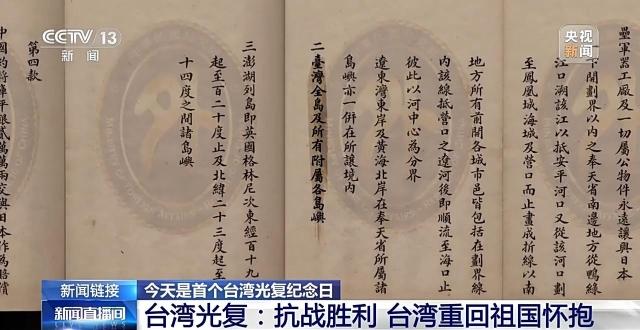 CCTV 13
新闻
央视
新闻
壘軍器工廠及一切屬公物件永遠讓與日本
一下開劃界以內之奉天省南邊地方從鴨綠
江口溯該江以抵安平河口又從該河口劃
至鳳凰城海城及營口而止畫成折線以南
地方所有前開各城市邑皆包括在劃界線
內該線抵營口之遼河後即順流至海口止
彼此以河中心為分界
遼東灣東岸及黃海北岸在奉天省所屬諸
島嶼亦一併在所讓境內
二臺灣全島及所有附屬各島嶼
三澎湖列島即英國格林尼次東經百十九
起至百二十度止及北緯二十三度起至
十四度之間諸島嶼
第四款
中國約將庫平銀貳萬萬兩交與日本作為賠償
新闻链接
今天是首个台湾光复纪念日
新闻直播间
台湾光复：抗战胜利 台湾重回祖国怀抱